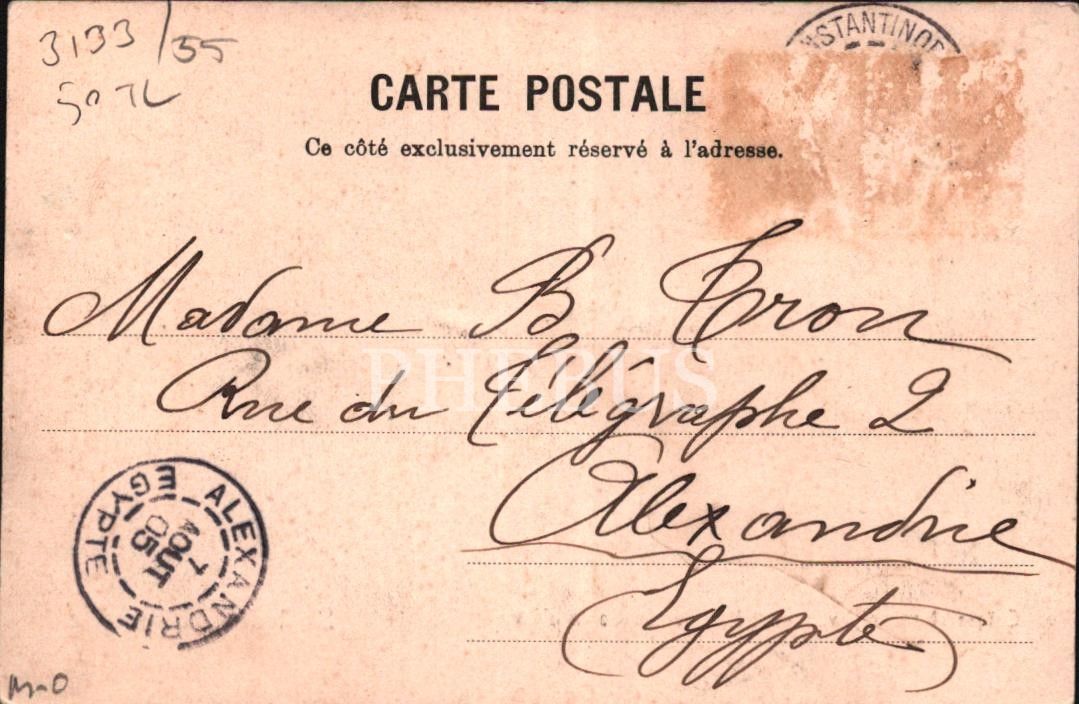 3133/55
50 TL
NSTANTINOP
CARTE POSTALE
Ce côté exclusivement réservé à l'adresse.
Madame B Tron
Rue du Télégraphe 2
Alexandrie
Egypte
PHEBUS
ALEXANDRIE
EGYPTE
7
AOUT
05